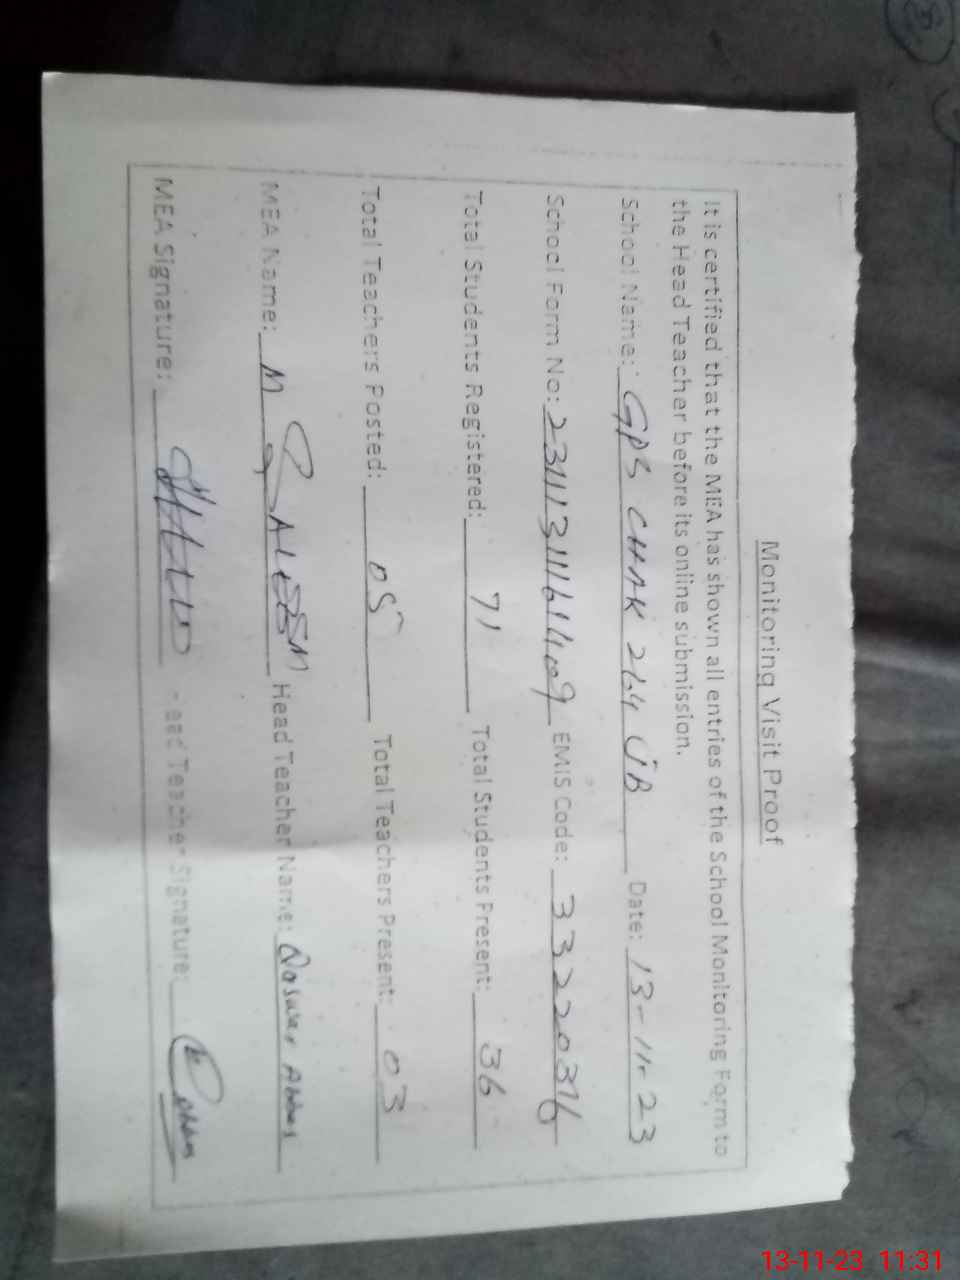 Monitoring Visit Proof
It is certified that the MEA has shown all entries of the School Monitoring Form to
the Head Teacher before its online submission.
School Name: GPS CHAK 264 UB Date: 13-11-23
School Form No: EMIS Code: 33220316
Total Students Registered: 71 Total Students Present: 36
Total Teachers Posted: 05 Total Teachers Present: 03
MEA Name: M SALEEM Head Teacher Name: Abbas
MEA Signature: Head Teacher Signature:
13-11-23 11:31